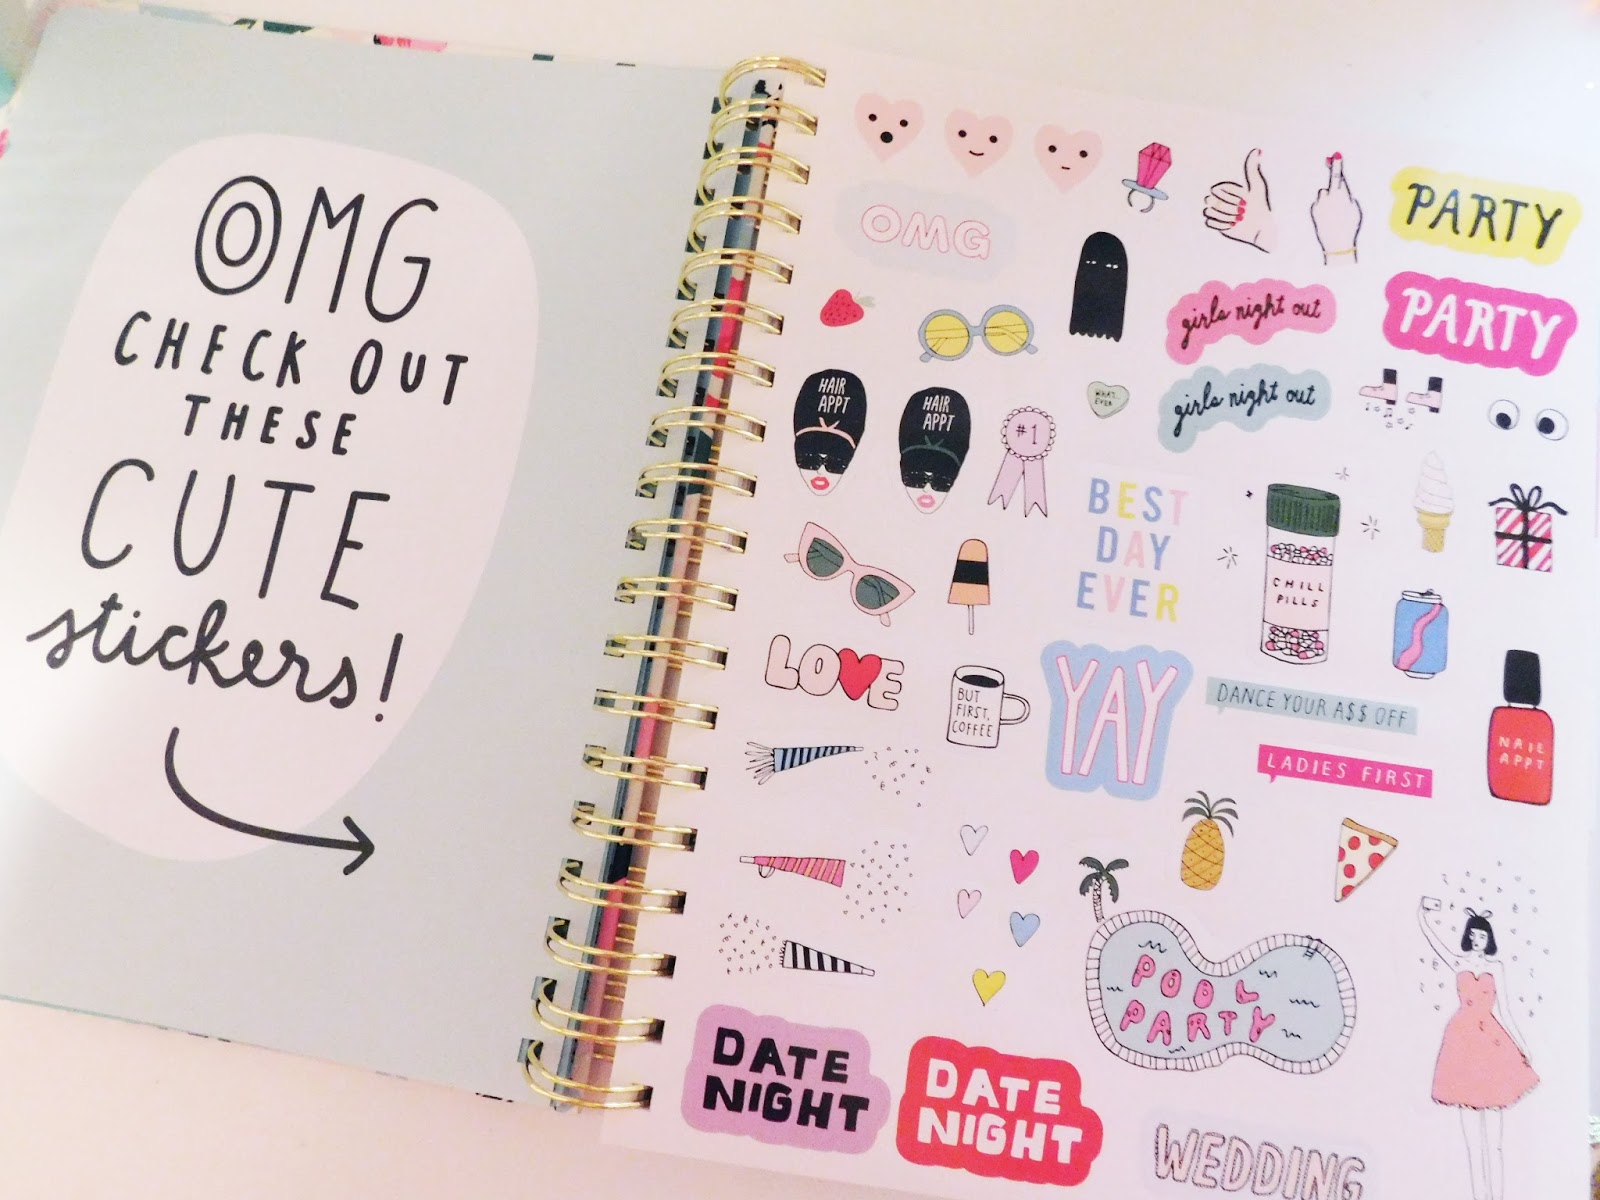 OMG
CHECK OUT
THESE
CUTE
stickers!
OMG
PARTY
girls night out
PARTY
HAIR
APPT
HAIR
APPT
#1
WHAT
EVER
girls night out
BEST
DAY
EVER
CHILL
PILLS
LOVE
BUT
FIRST,
COFFEE
YAY
DANCE YOUR A$$ OFF
LADIES FIRST
NAIL
APPT
POOL
PARTY
DATE
NIGHT
DATE
NIGHT
WEDDING